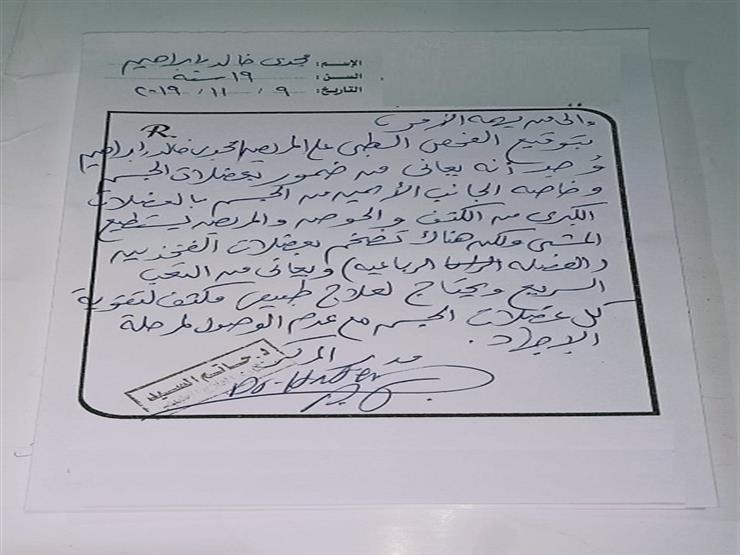 الإسم: مجدى خالد إبراهيم
السن: ١٩ سنة
التاريخ: ٩ / ١١ / ٢٠١٩
R
إلى من يهمه الأمر
بتوقيع الفحص الطبى على المريض مجدى خالد إبراهيم
وُجد أنه يعانى من ضمور بعضلات الجسم
وخاصه الجانب الأيمن من الجسم بالعضلات
الكبرى من الكتف والحوض والمريض يستطيع
المشى ولكن هناك تضخم بعضلات الفخذين
(العضله الرباعيه) ويعانى من التعب
السريع ويحتاج لعلاج طبيعى مكثف لتقوية
كل عضلات الجسم مع عدم الوصول لمرحلة
الإجهاد.
مدير المركز
د. حاتم السيد
Dr. Hatem